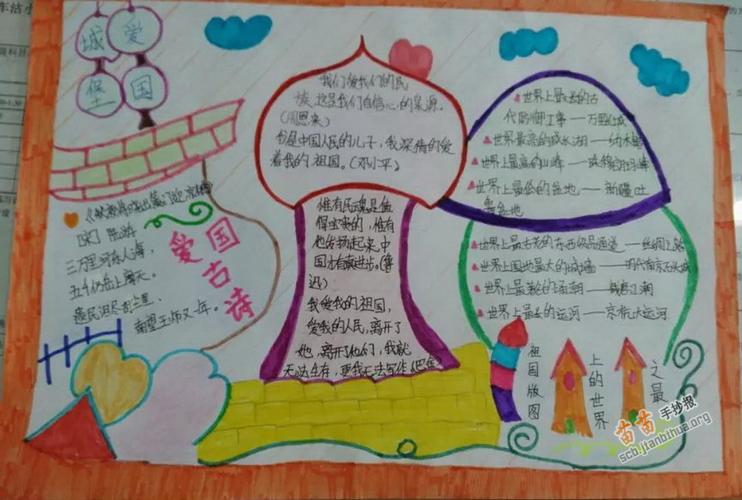 爱国
城堡
我们爱我们的民
族,这是我们自信心的泉源。
(周恩来)
我是中国人民的儿子,我深情的爱
着我的祖国。(邓小平)
惟有民魂是值
得宝贵的,惟有
他发扬起来,中
国才有真进步。(鲁
迅)
我爱我的祖国,
爱我的人民,离开了
她,离开了他们,我就
无法生存,更我无法写作(巴金)
世界上最长的古
代防御工事——万里长城
世界最高的咸水湖——纳木错
世界上最高的山峰——珠穆朗玛峰
世界上最低的盆地——新疆吐
鲁番盆地
世界上最古老的东西织品通道——丝绸之路
世界上最长的运河——京杭大运河
[宋] 陆游
三万里河东入海,
五千仞岳上摩天。
遗民泪尽胡尘里,
南望王师又一年。
爱国古诗
祖国版图
上的世界
之最
苗苗手抄报
scb.jianbihua.org